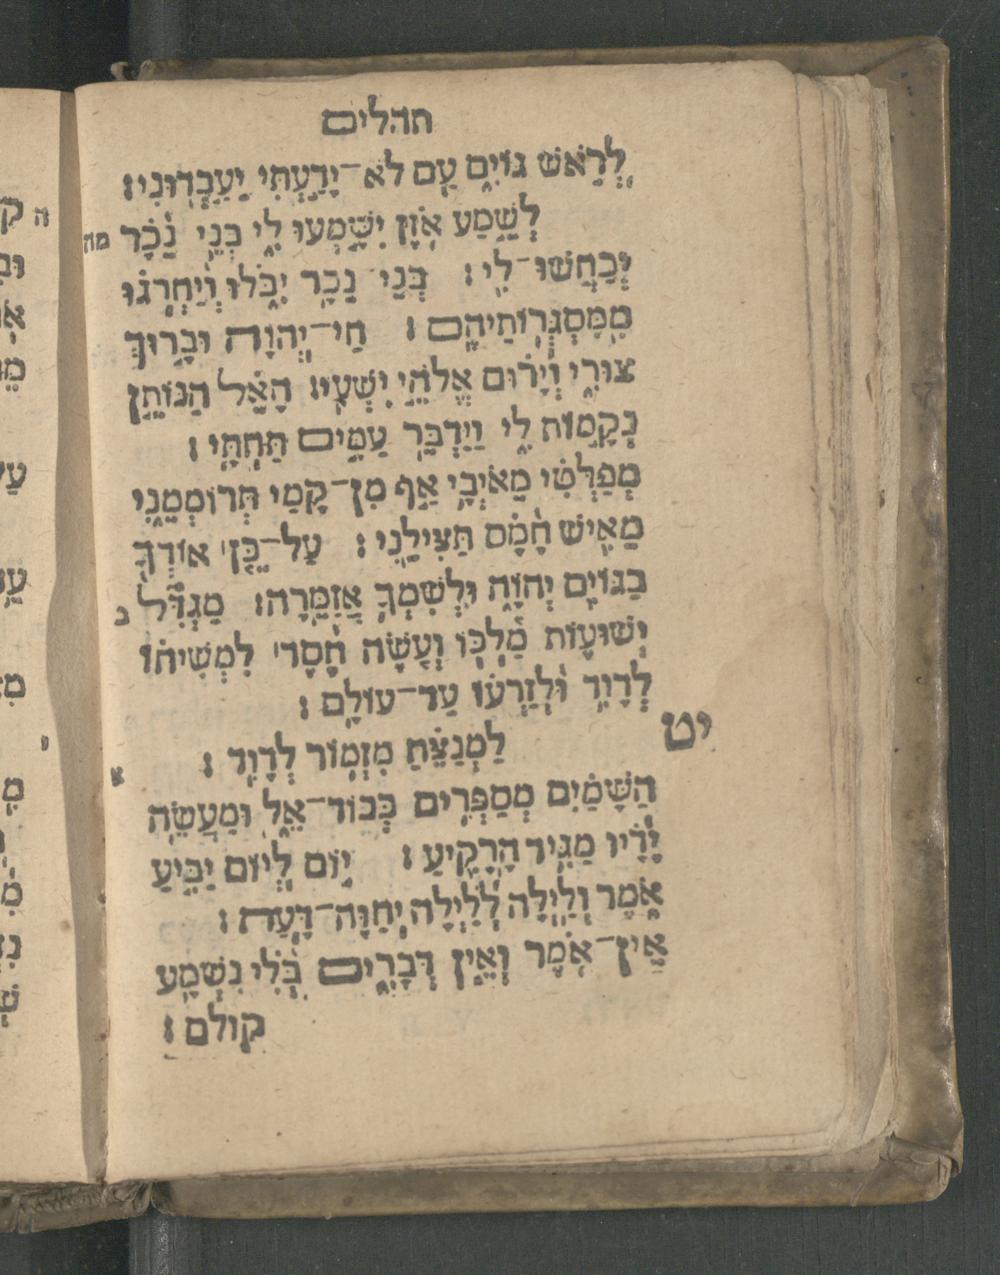 תהלים
לְרֹאשׁ גּוֹיִם עַם לֹא־יָדַעְתִּי יַעַבְדוּנִי:
לְשֵׁמַע אֹזֶן יִשָּׁמְעוּ לִי בְּנֵי נֵכָר מה
יְכַחֲשׁוּ־לִי: בְּנֵי נֵכָר יִבֹּלוּ וְיַחְרְגוּ
מִמִּסְגְּרוֹתֵיהֶם: חַי־יְהוָה וּבָרוּךְ
צוּרִי וְיָרוּם אֱלֹהֵי יִשְׁעִי: הָאֵל הַנּוֹתֵן
נְקָמוֹת לִי וַיַּדְבֵּר עַמִּים תַּחְתָּי:
מְפַלְּטִי מֵאֹיְבָי אַף מִן־קָמַי תְּרוֹמְמֵנִי
מֵאִישׁ חָמָס תַּצִּילֵנִי: עַל־כֵּן אוֹדְךָ
בַגּוֹיִם יְהוָה וּלְשִׁמְךָ אֲזַמֵּרָה: מַגְדִּל נ
יְשׁוּעוֹת מַלְכּוֹ וְעֹשֶׂה חֶסֶד לִמְשִׁיחוֹ
לְדָוִד וּלְזַרְעוֹ עַד־עוֹלָם:
יט לַמְנַצֵּחַ מִזְמוֹר לְדָוִד: א
הַשָּׁמַיִם מְסַפְּרִים כְּבוֹד־אֵל וּמַעֲשֵׂה
יָדָיו מַגִּיד הָרָקִיעַ: יוֹם לְיוֹם יַבִּיעַ
אֹמֶר וְלַיְלָה לְּלַיְלָה יְחַוֶּה־דָּעַת:
אֵין־אֹמֶר וְאֵין דְּבָרִים בְּלִי נִשְׁמָע
קולם: